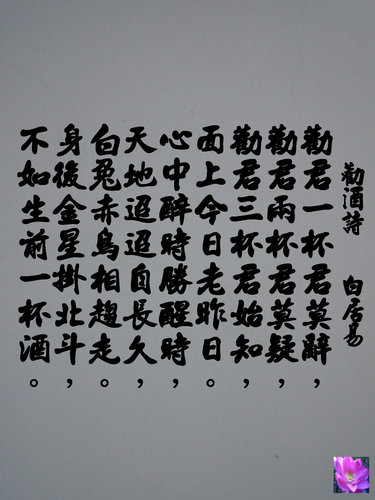 勸酒詩 白居易
勸君一杯君莫辭,
勸君兩杯君莫疑,
勸君三杯君始知,
面上今日老昨日。
心中醉時勝醒時,
天地迢迢自長久,
白兔赤鳥相趨走。
身後金星掛北斗,
不如生前一杯酒。